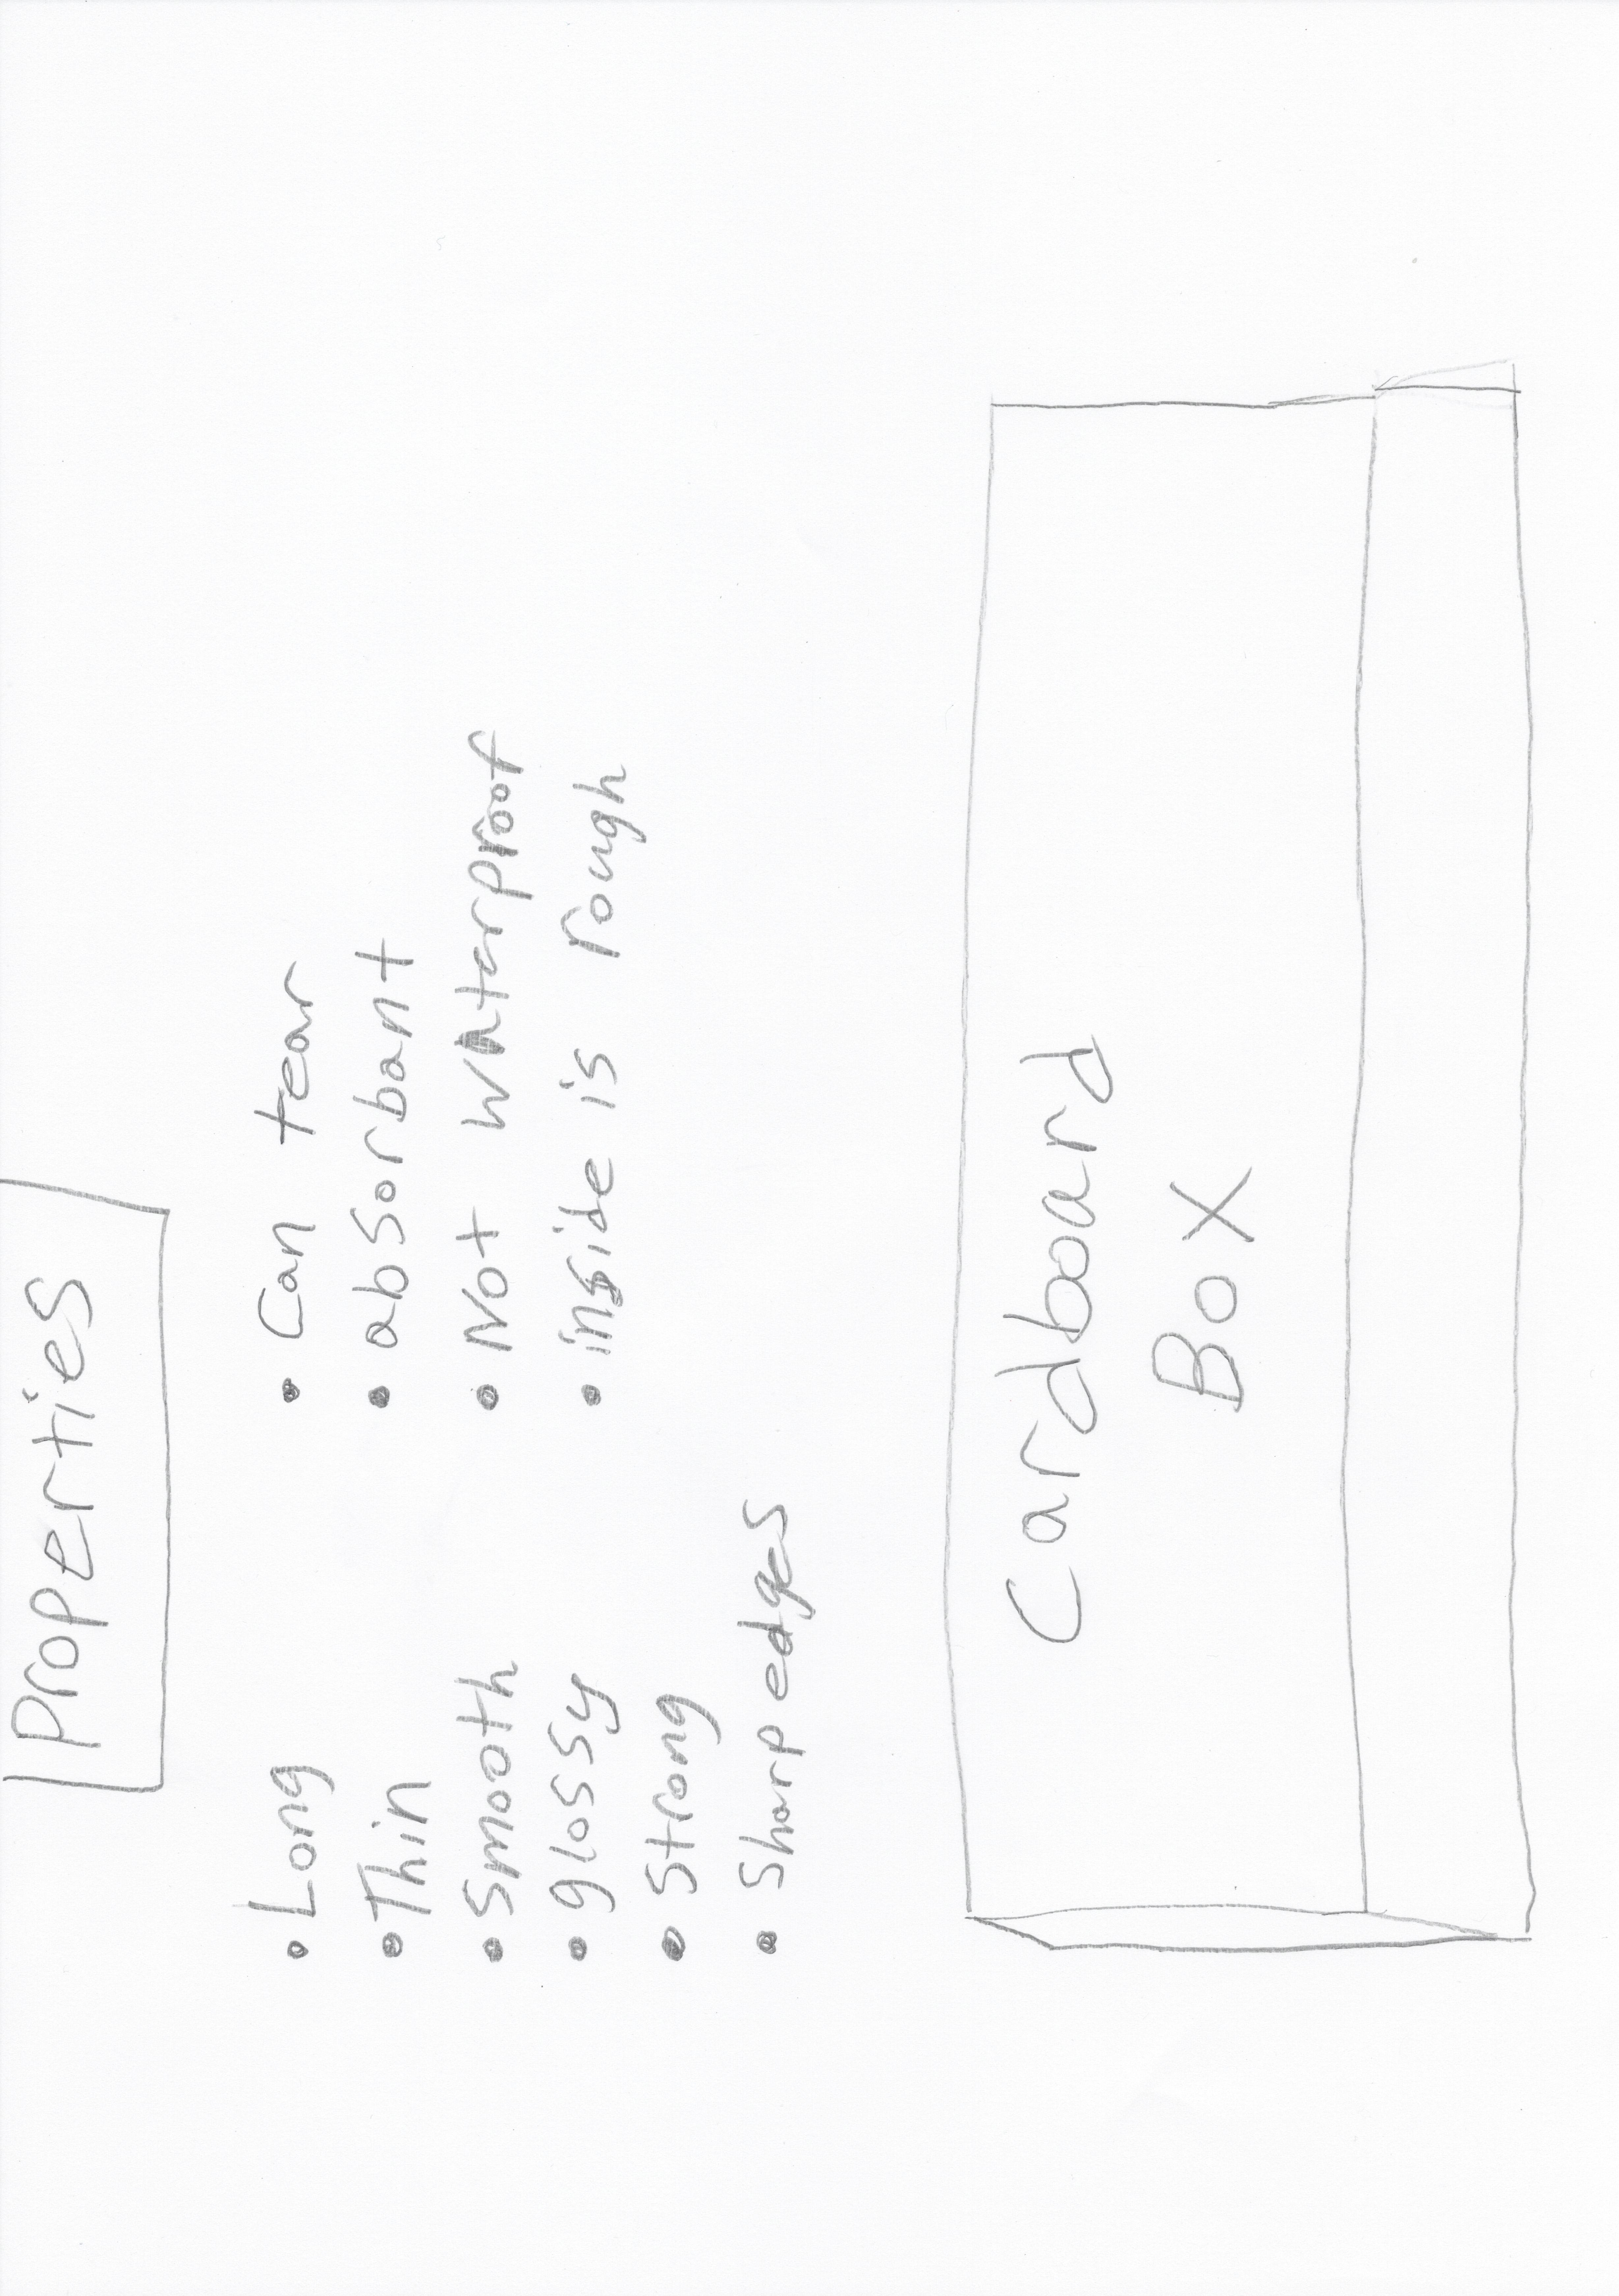 Properties
• Long
• Thin
• Smooth
• glossy
• Strong
• Sharp edges
• Can tear
• absorbant
• Not Waterproof
• inside is rough
Cardboard
Box